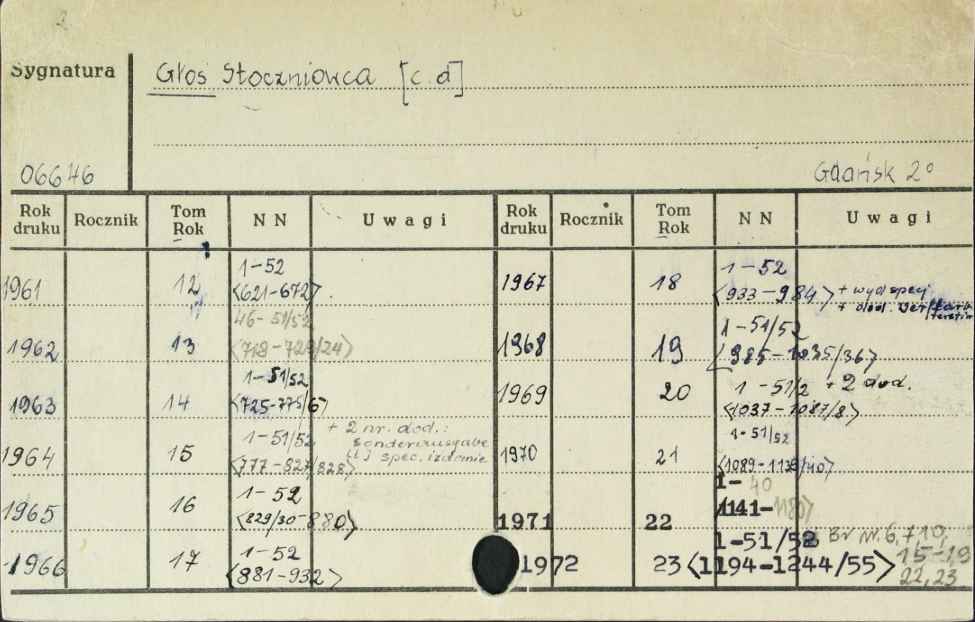 Sygnatura
Głos Stoczniowca [c.d]
06646
Gdańsk 2°
Rok druku Rocznik Tom Rok NN Uwagi Rok druku Rocznik Tom Rok NN Uwagi
1961 12 1-52 <621-672>
1962 13 46-51/52 <719-723/24>
1963 14 1-51/52 <725-775/6>
1964 15 1-51/52 <777-827/828> + 2 nr. dod.: Sonderausgabe (i) spec. izdanie
1965 16 1-52 <829/30-880>
1966 17 1-52 <881-932>
1967 18 1-52 <933-984> + wyd specj. + dod.
1968 19 1-51/52 <985-1035/36>
1969 20 1-51/2 + 2 dod. <1037-1087/8>
1970 21 1-51/52 <1089-1139/40>
1971 22 1-40 <1141-1180>
1972 23 1-51/52 <1194-1244/55> Br nr. 6,7,10, 15-19 22,23